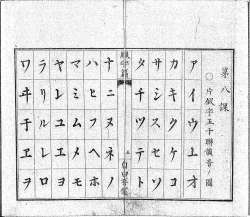 第八課
○片假字五十聯音ノ圖
アイウエオ
カキクケコ
サシスセソ
タチツテト
ナニヌネノ
ハヒフヘホ
マミムメモ
ヤイユエヨ
ラリルレロ
ワヰウヱヲ